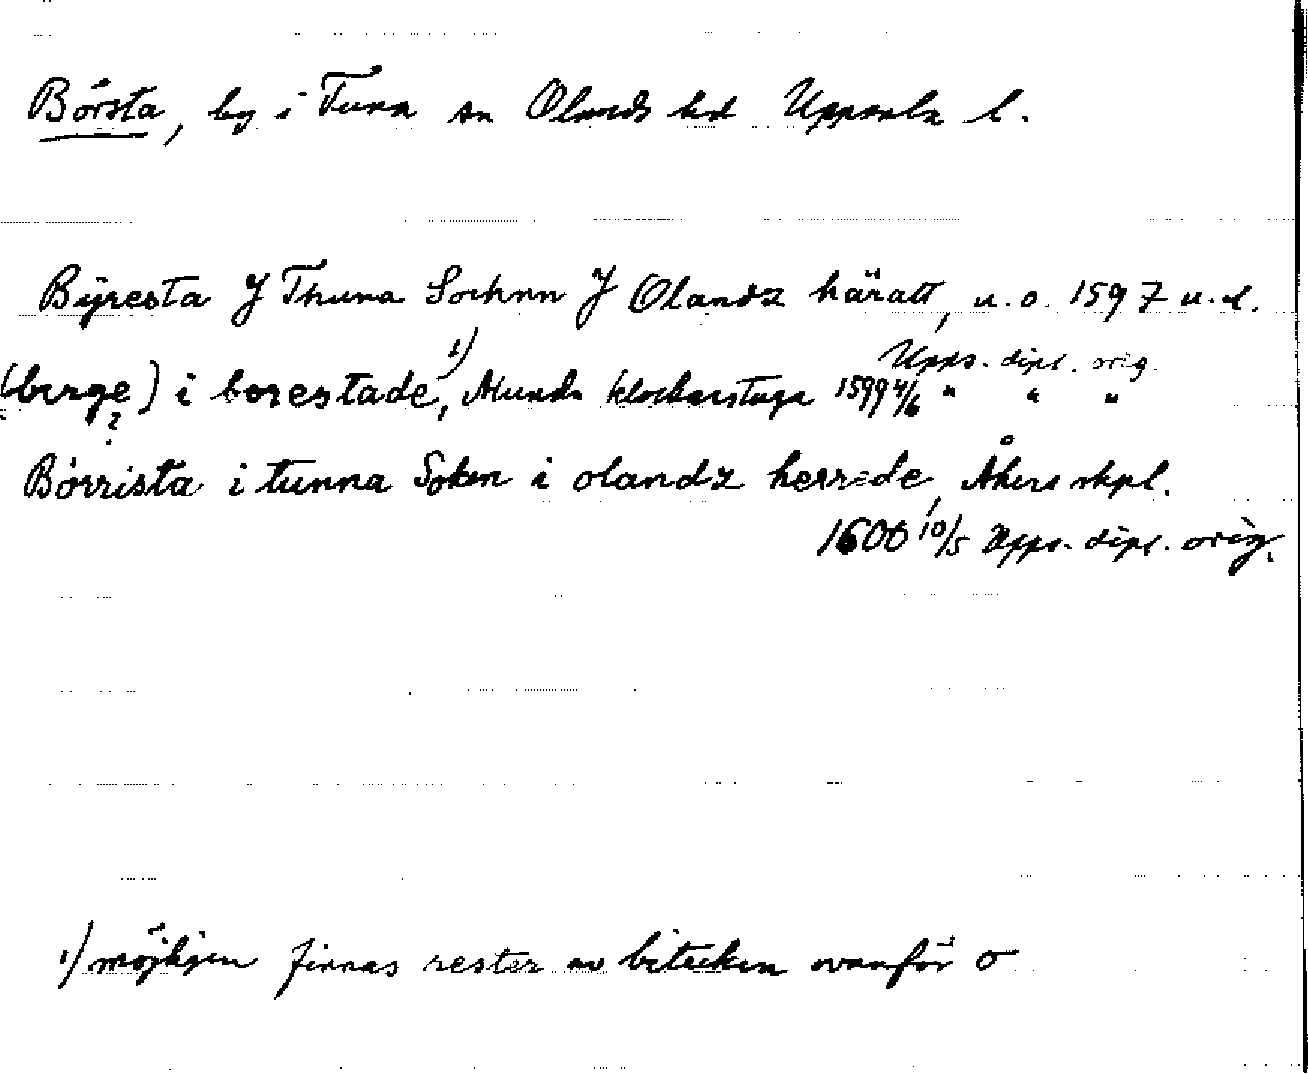 Börsta, by i Tuna sn Olands hd Uppsala l.
Bÿresta J Thuna Sochnn J Olandz häratt, u.o. 1597 u.d.
Upps. dipl. orig.
(berge) i borestade,¹⁾ Alunda klockarstuga 1599 4/6 " " "
?
Börrista i tunna Soken i olandz herrede, Åkers skpl.
1600 10/5 Upps. dipl. orig.
1) möjligen finnas rester av bitecken ovanför o